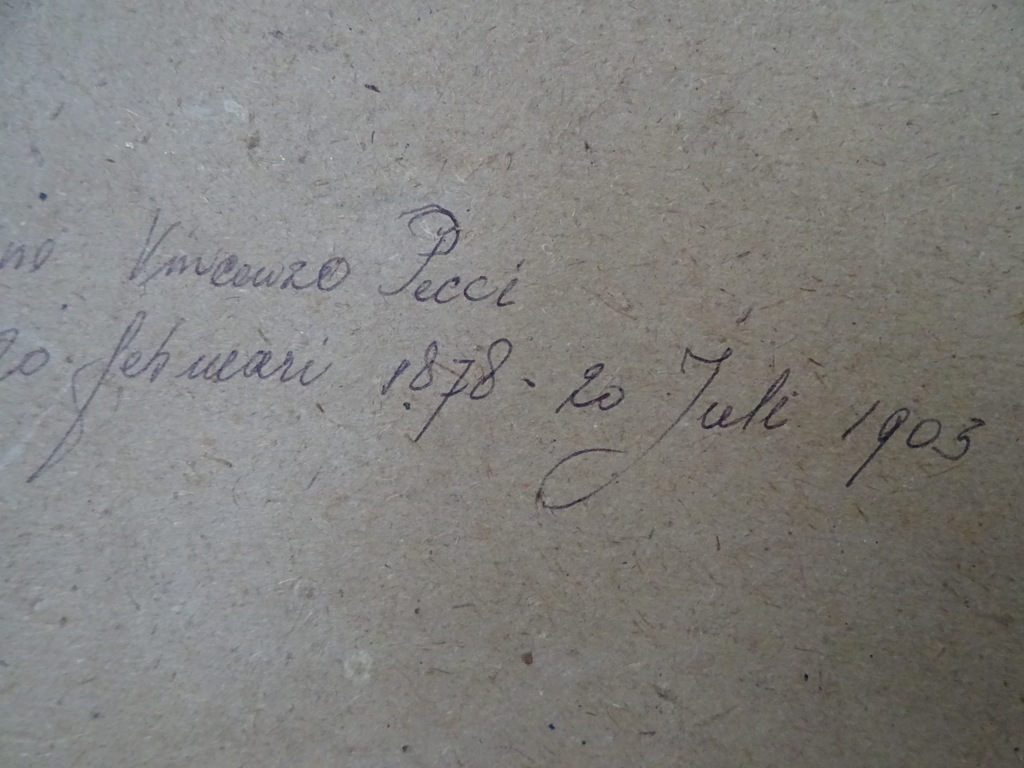 Vincenzo Pecci
20 februari 1878 - 20 Juli 1903